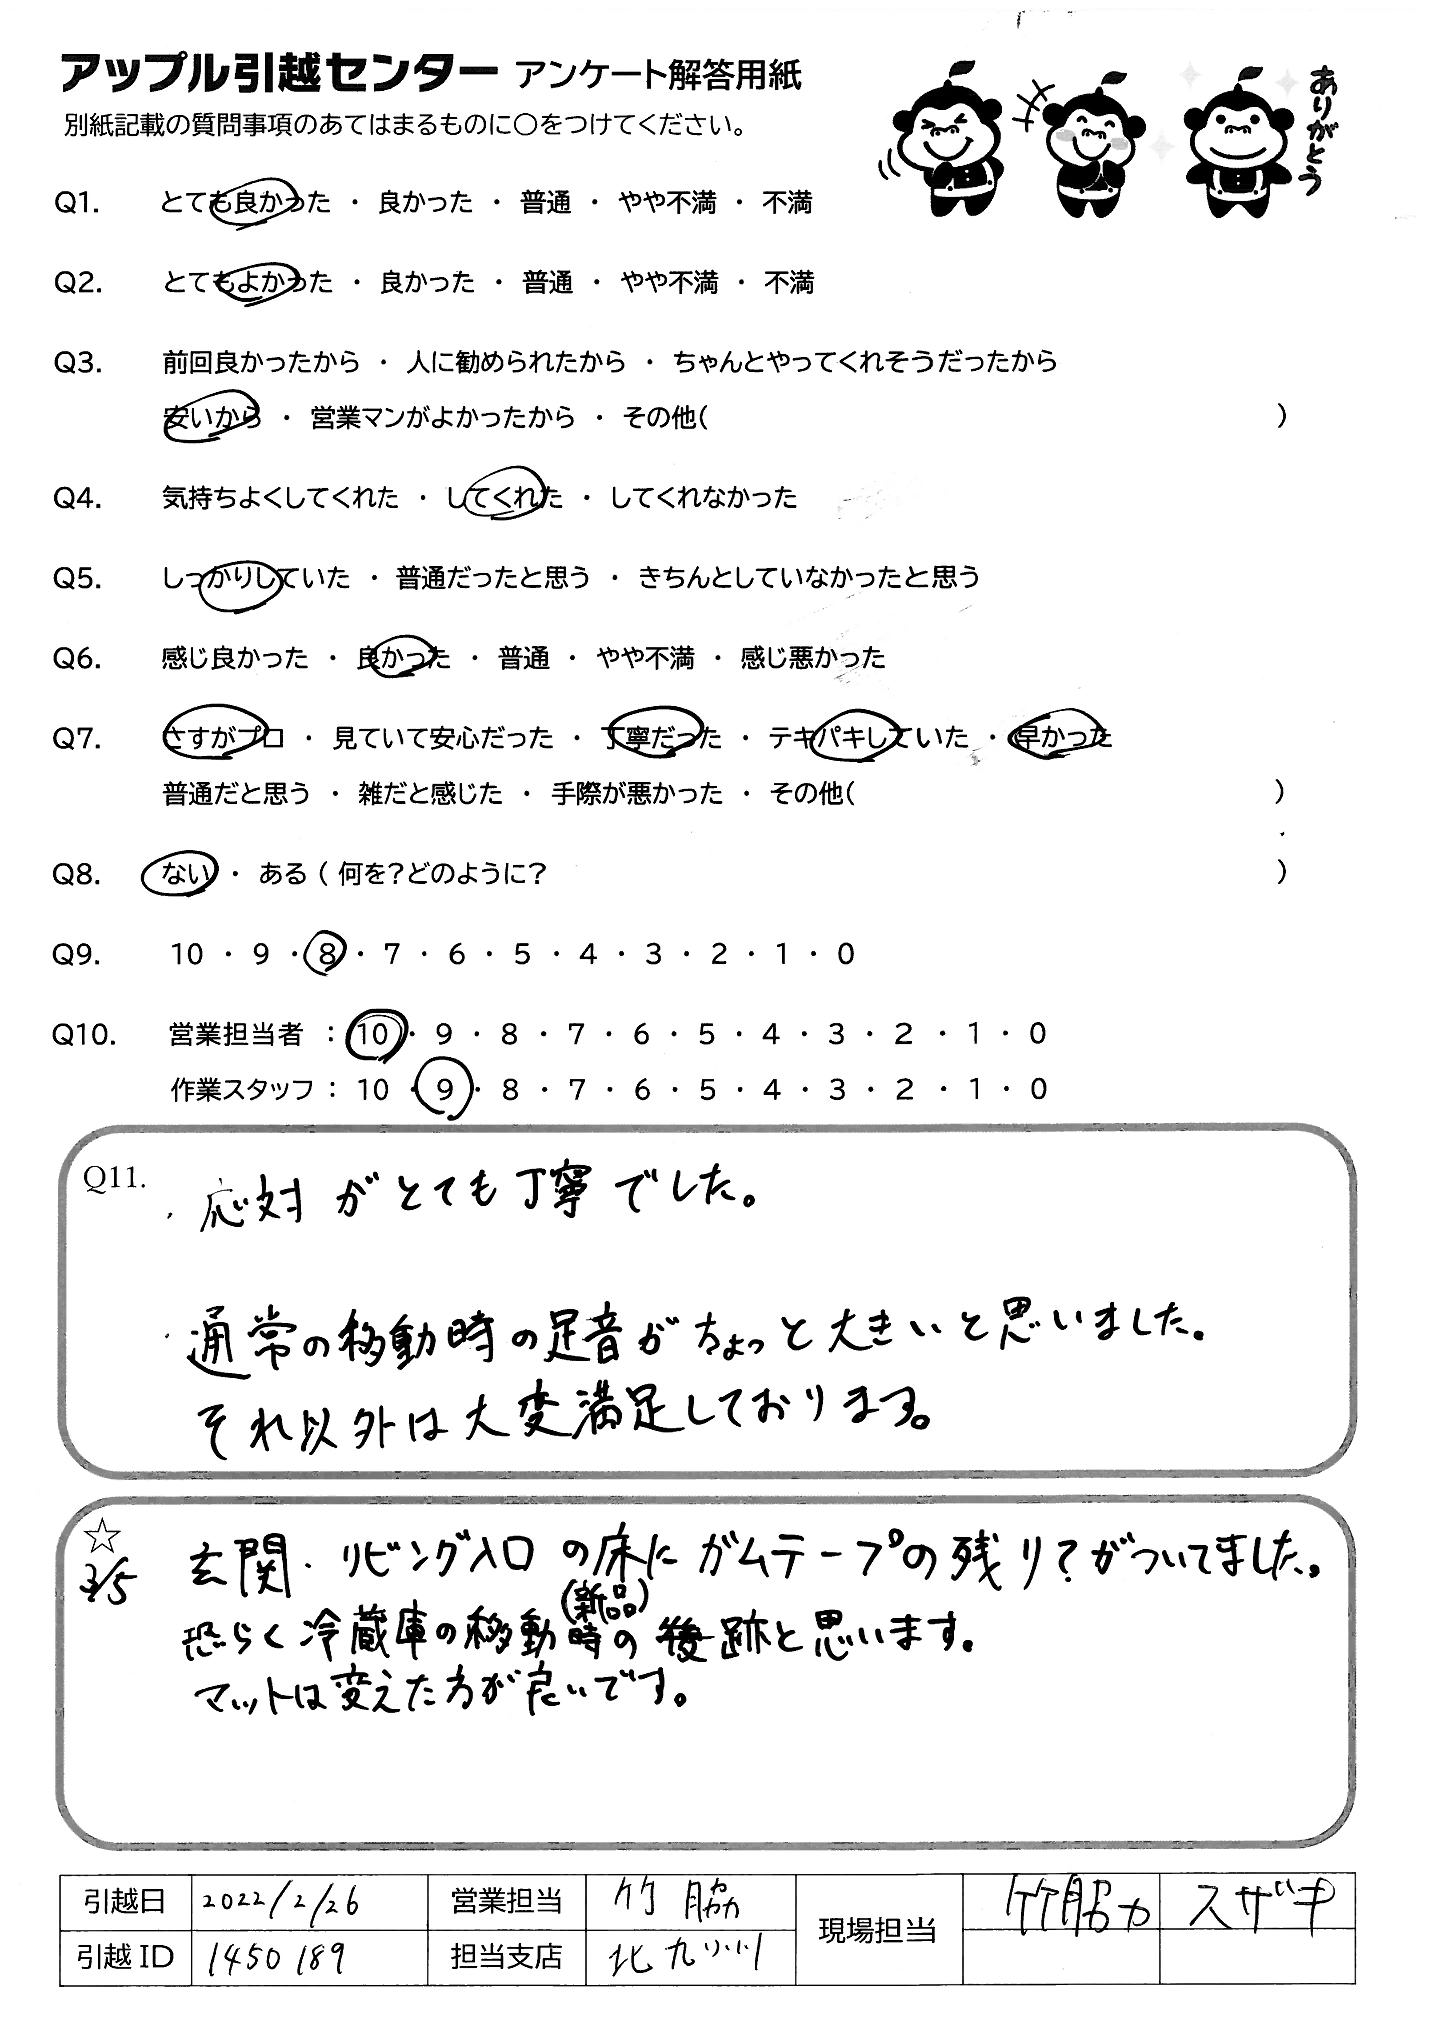 アップル引越センター アンケート解答用紙
別紙記載の質問事項のあてはまるものに〇をつけてください。
ありがとう
Q1. とても良かった ・ 良かった ・ 普通 ・ やや不満 ・ 不満
Q2. とてもよかった ・ 良かった ・ 普通 ・ やや不満 ・ 不満
Q3. 前回良かったから ・ 人に勧められたから ・ ちゃんとやってくれそうだったから
安いから ・ 営業マンがよかったから ・ その他( )
Q4. 気持ちよくしてくれた ・ してくれた ・ してくれなかった
Q5. しっかりしていた ・ 普通だったと思う ・ きちんとしていなかったと思う
Q6. 感じ良かった ・ 良かった ・ 普通 ・ やや不満 ・ 感じ悪かった
Q7. さすがプロ ・ 見ていて安心だった ・ 丁寧だった ・ テキパキしていた ・ 早かった
普通だと思う ・ 雑だと感じた ・ 手際が悪かった ・ その他( )
Q8. ない ・ ある ( 何を?どのように? )
Q9. 10 ・ 9 ・ 8 ・ 7 ・ 6 ・ 5 ・ 4 ・ 3 ・ 2 ・ 1 ・ 0
Q10. 営業担当者 : 10 ・ 9 ・ 8 ・ 7 ・ 6 ・ 5 ・ 4 ・ 3 ・ 2 ・ 1 ・ 0
作業スタッフ : 10 ・ 9 ・ 8 ・ 7 ・ 6 ・ 5 ・ 4 ・ 3 ・ 2 ・ 1 ・ 0
Q11. ・応対がとても丁寧でした。
・通常の移動時の足音がちょっと大きいと思いました。
それ以外は大変満足しております。
☆ 玄関・リビング入口の床にガムテープの残り?がついてました。
3/5
(新品)
恐らく冷蔵庫の移動時の後跡と思います。
マットは変えた方が良いです。
引越日 2022/2/26 営業担当 竹脇 現場担当 竹脇 スザキ
引越ID 1450189 担当支店 北九州